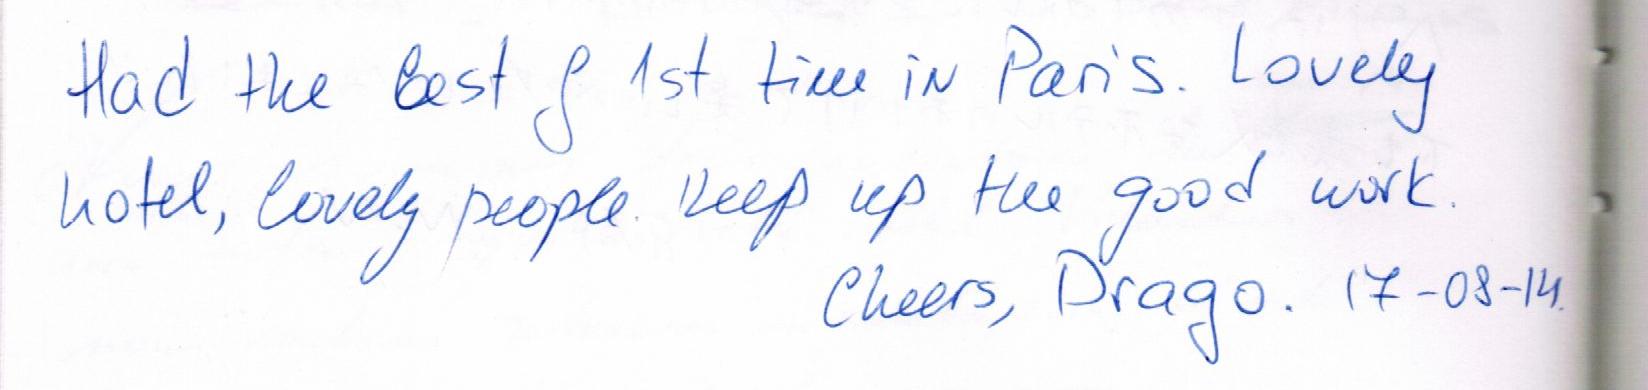 Had the best & 1st time in Paris. Lovely
hotel, lovely people. Keep up the good work.
Cheers, Drago. 17-08-14.